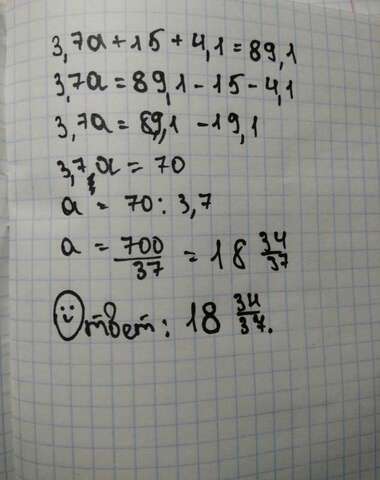 3,7a + 15 + 4,1 = 89,1
3,7a = 89,1 - 15 - 4,1
3,7a = 89,1 - 19,1
3,7a = 70
a = 70 : 3,7
a = 700/37 = 18 34/37
Ответ: 18 34/37.